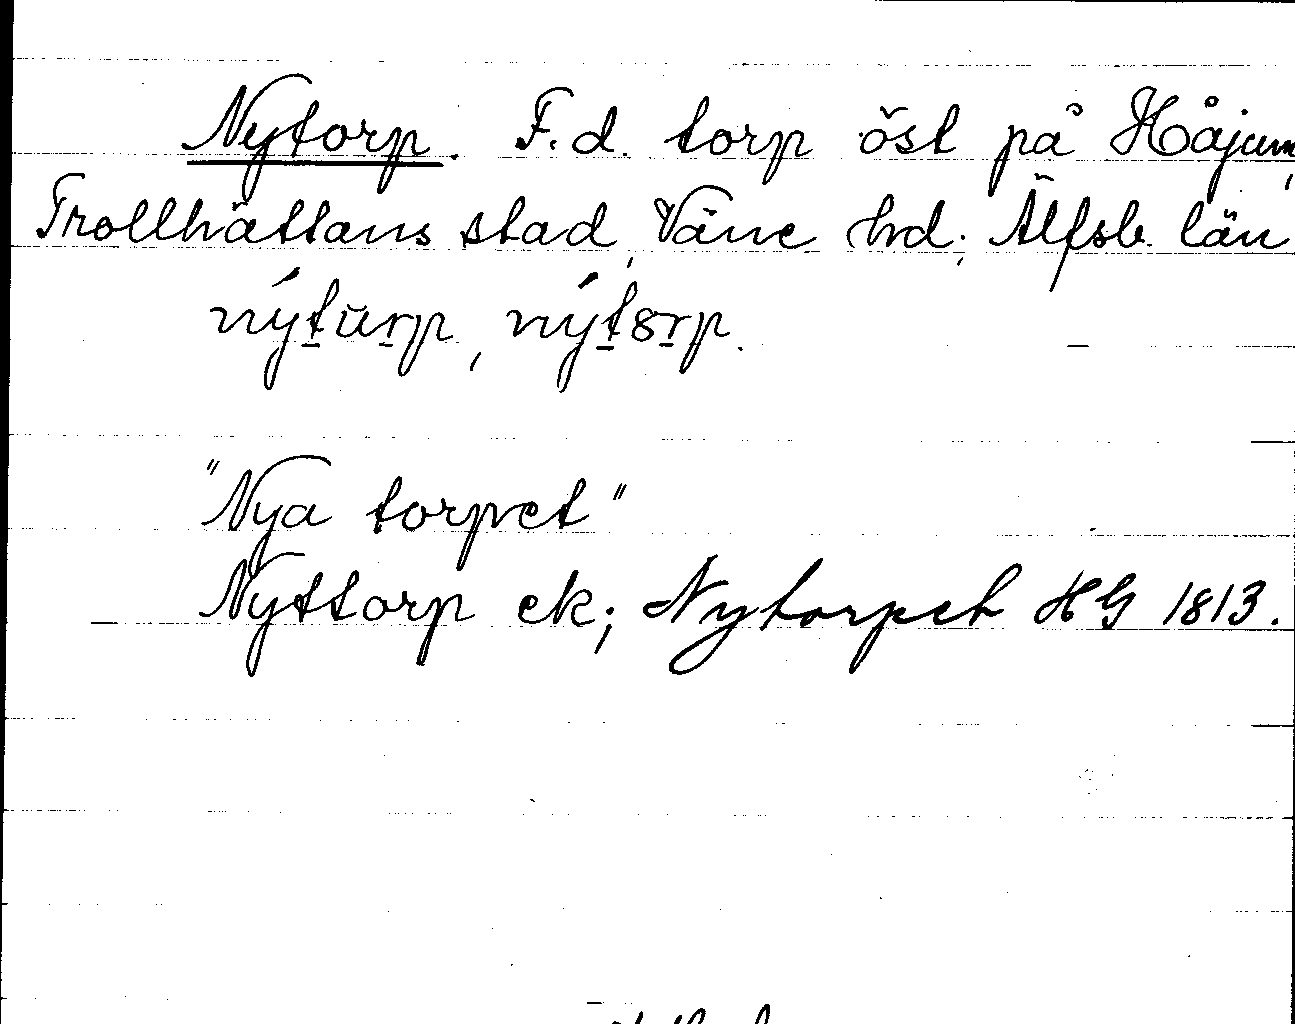 Nytorp. F.d. torp öst på Håjum,
Trollhättans stad, Väne hd; Älfsb. län
nýtŭrp, nýt8rp.
"Nya torpet"
Nyttorp ek; Nytorpet HG 1813.